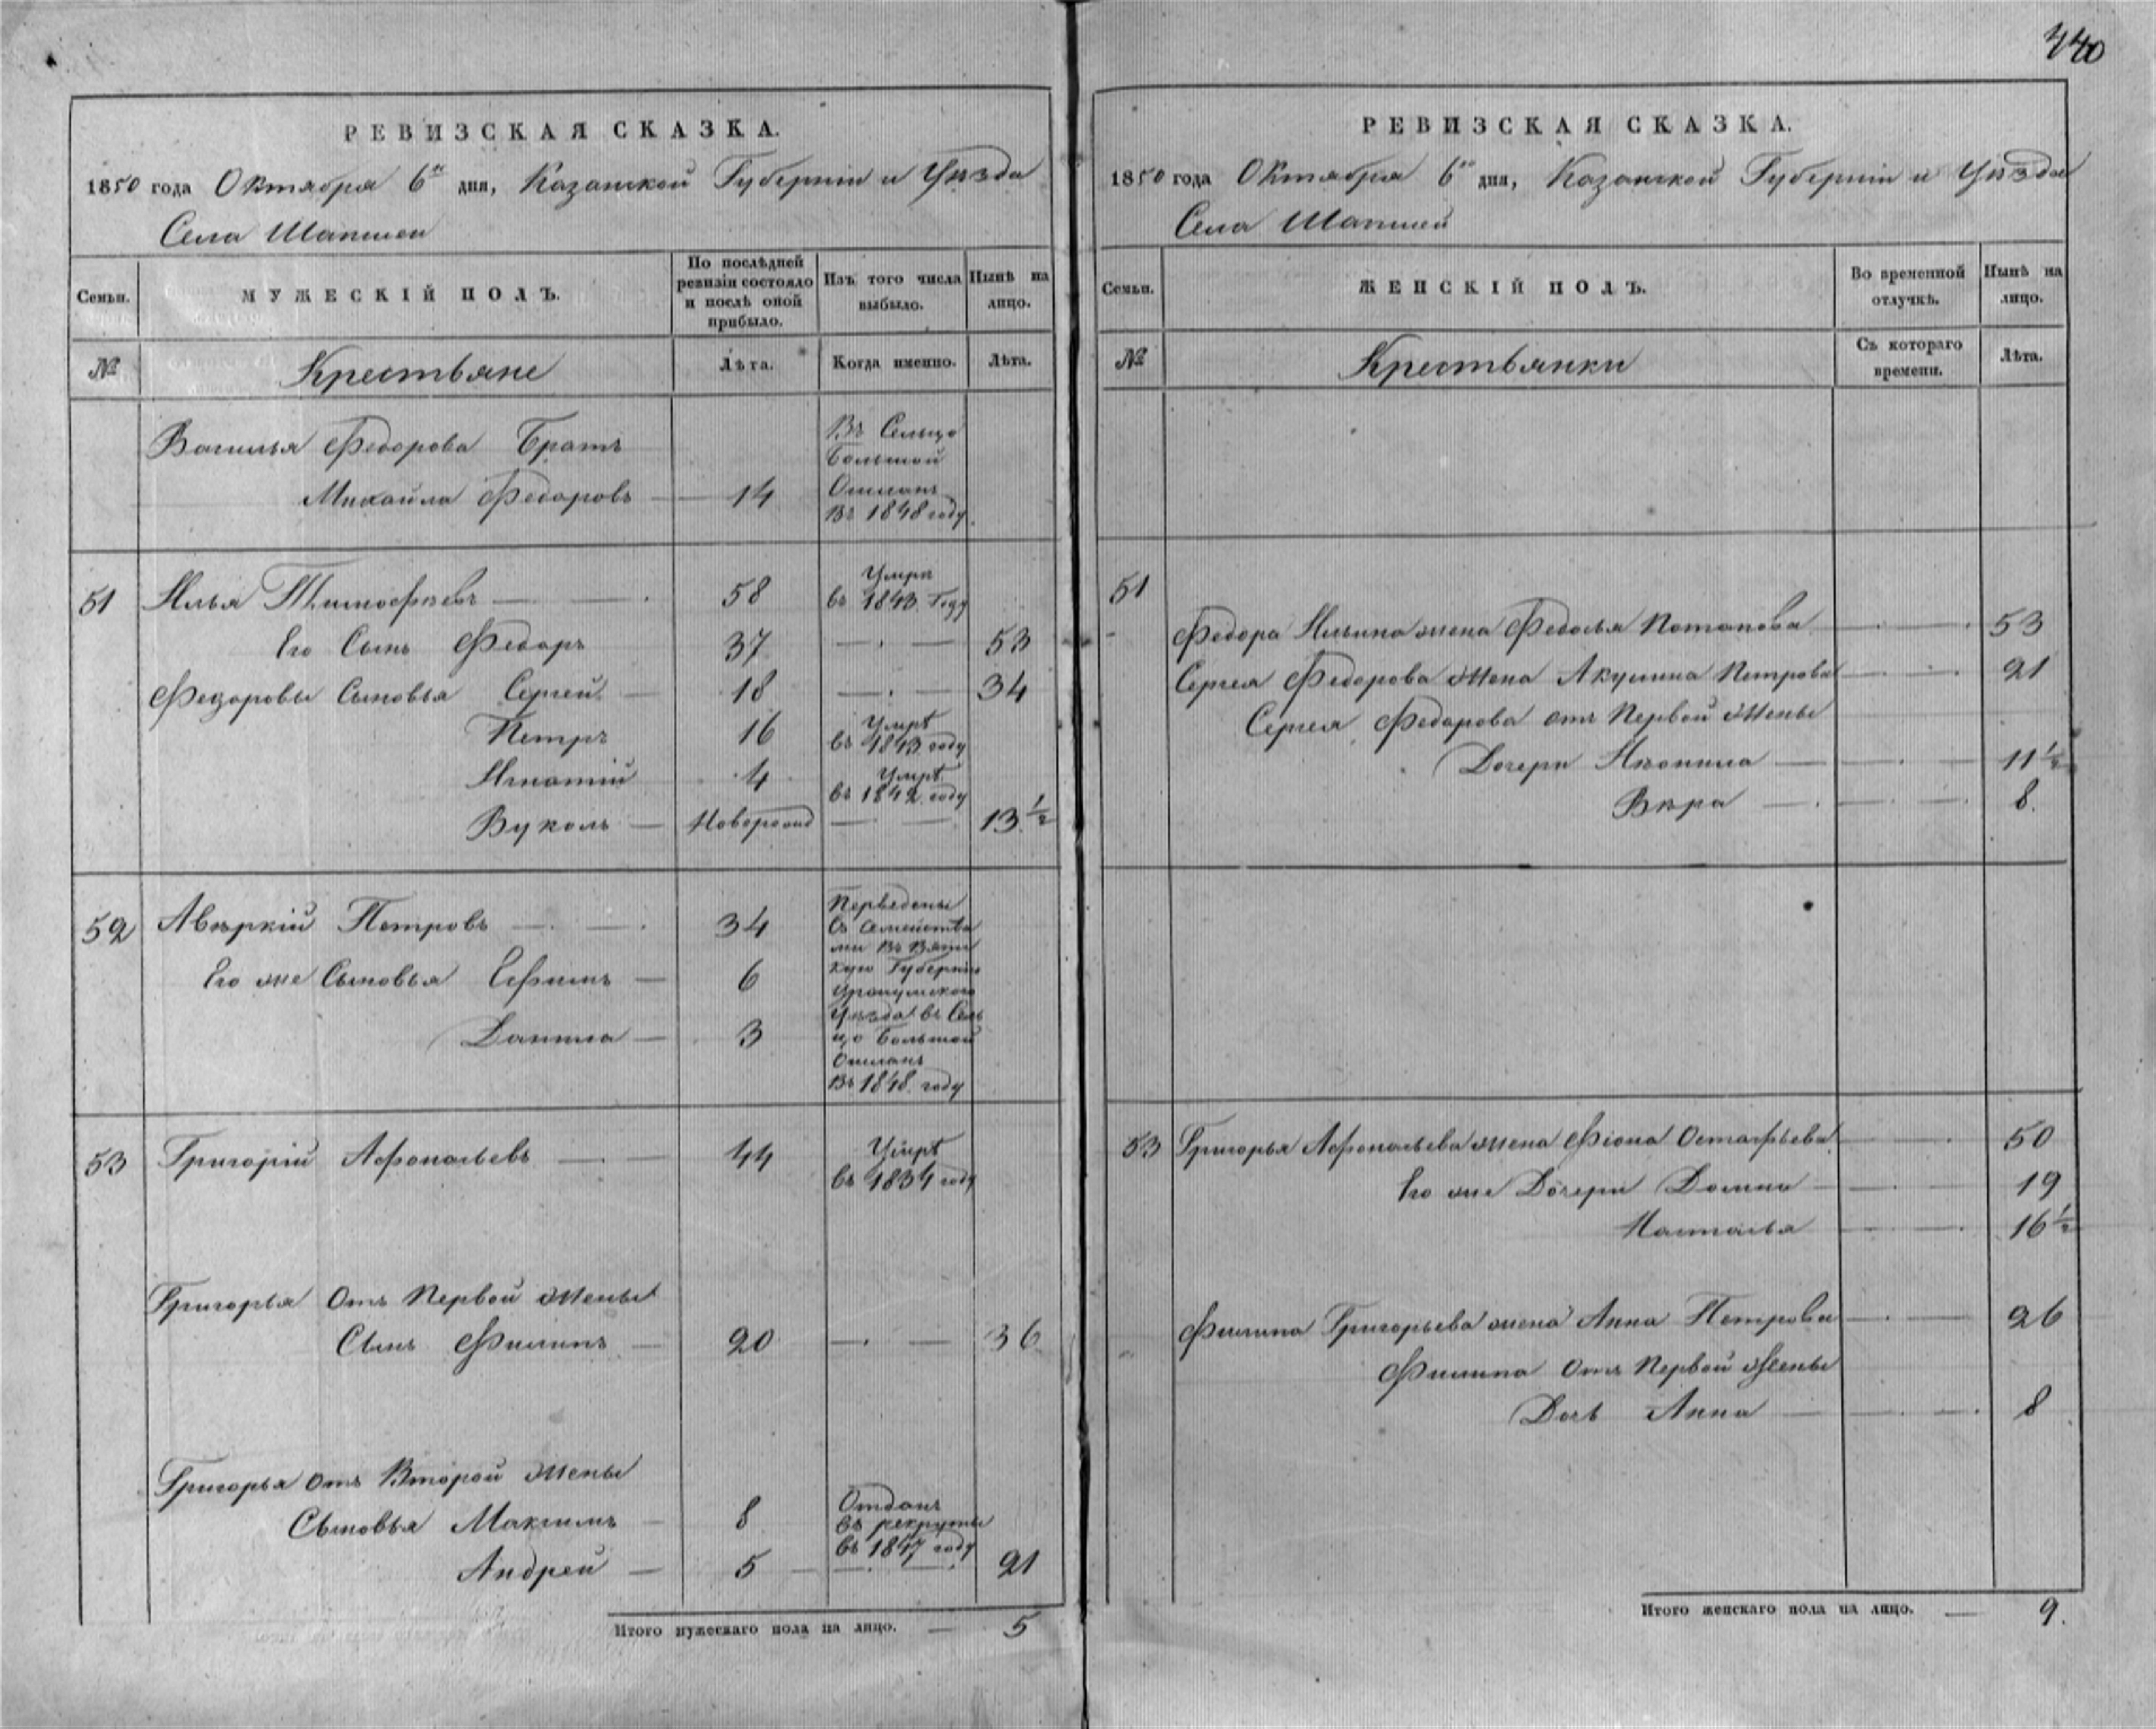 440
РЕВИЗСКАЯ СКАЗКА.
1850 года Октября 6го дня, Казанской Губерніи и Уѣзда
Села Шапшей
Семьи.
МУЖЕСКІЙ ПОЛЪ.
По послѣдней ревизіи состояло и послѣ оной прибыло.
Изъ того числа выбыло.
Нынѣ на лицо.
№
Крестьяне
Лѣта.
Когда именно.
Лѣта.
Василья Федорова Братъ
Михайла Федоровъ 14
Въ Сельцо
Большой
Ошланъ
Въ 1848 году.
51 Илья Тимофѣевъ 58 Умре въ 1843 Году
Его Сынъ Федоръ 37 53
Федоровы Сыновья Сергей 18 34
Петръ 16 Умрѣ въ 1843 году
Игнатій 4 Умрѣ въ 1842 году
Вуколъ Новорожд 13 1/2
52 Авѣркій Петровъ 34
Его же Сыновья Ефимъ 6
Данила 3
Перведены
Съ Семейства
ми Въ Вятс
кую Губернію
Уржумского
Уѣзда въ Сель
цо Большой
Ошланъ
Въ 1848 году
53 Григорій Афонасьевъ 44 Умрѣ въ 1834 году
Григорья Отъ Первой Жены
Сынъ Филипъ 20 36
Григорья отъ Второй Жены
Сыновья Максимъ 8 Отданъ въ рекруты въ 1847 году
Андрей 5 21
Итого мужескаго пола на лицо. 5
РЕВИЗСКАЯ СКАЗКА.
1850 года Октября 6го дня, Казанской Губерніи и Уѣзда
Села Шапшей
Семьи.
ЖЕНСКІЙ ПОЛЪ.
Во временной отлучкѣ.
Нынѣ на лицо.
№
Крестьянки
Съ котораго времени.
Лѣта.
51
Федора Ильина жена Федосья Потапова 53
Сергея Федорова Жена Акулина Петрова 21
Сергея Федорова отъ Первой Жены
Дочери Нѣонила 11 1/2
Вѣра 8.
53 Григорья Афонасьева жена Фіона Остафьева 50
Его же Дочери Домна 19
Настасья 16 1/2
Филипа Григорьева жена Анна Петрова 26
Филипа Отъ Первой Жены
Дочь Анна 8
Итого женскаго пола на лицо. 9.